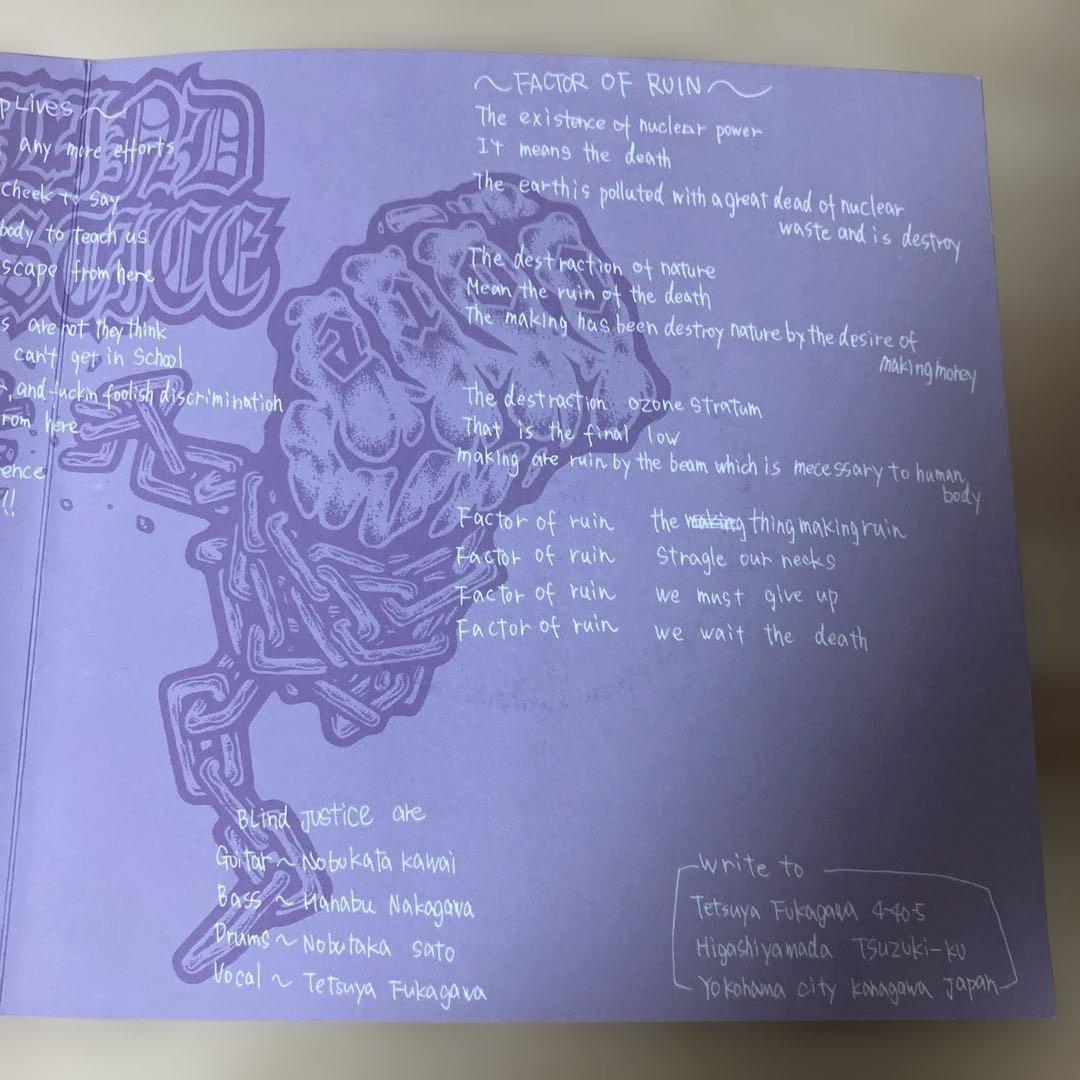 BLIND
JUSTICE
pLives
any more efforts
cheek to say
body to teach us
scape from here
s are not they think
can't get in School
, and fuckin foolish discrimination
rom here
ence
!!
~FACTOR OF RUIN~
The existence of nuclear power
It means the death
The earth is polluted with a great dead of nuclear
waste and is destroy
The destraction of nature
Mean the ruin of the death
The making has been destroy nature by the desire of
making money
The destraction ozone stratum
That is the final low
making are ruin by the beam which is mecessary to human
body
Factor of ruin the making thing making ruin
Factor of ruin Stragle our necks
Factor of ruin we must give up
Factor of ruin we wait the death
BLind JUSTICE are
Guitar ~ Nobukata Kawai
Bass ~ Manabu Nakagawa
Drums ~ Nobutaka Sato
Vocal ~ Tetsuya Fukagawa
Write to
Tetsuya Fukagawa 4-40-5
Higashiyamada TSuzuki-ku
Yokohama city kanagawa Japan